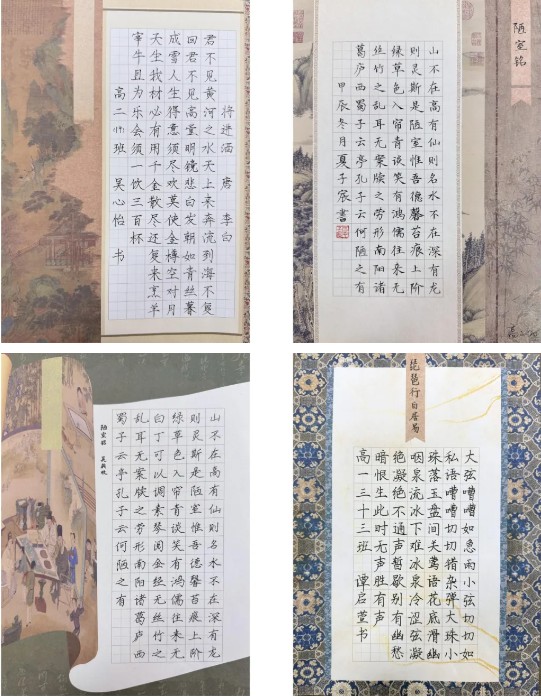 将进酒 唐 李白
君不见黄河之水天上来奔流到海不复
回君不见高堂明镜悲白发朝如青丝暮
成雪人生得意须尽欢莫使金樽空对月
天生我材必有用千金散尽还复来烹羊
宰牛且为乐会须一饮三百杯
高二 班 吴心怡 书
陋室铭
山不在高有仙则名水不在深有龙
则灵斯是陋室惟吾德馨苔痕上阶
绿草色入帘青谈笑有鸿儒往来无
丝竹之乱耳无案牍之劳形南阳诸
葛庐西蜀子云亭孔子云何陋之有
甲辰冬月夏子宸书
山不在高有仙则名水不在深有龙
则灵斯是陋室惟吾德馨苔痕上阶
绿草色入帘青谈笑有鸿儒往来无
白丁可以调素琴阅金经无丝竹之
乱耳无案牍之劳形南阳诸葛庐西
蜀子云亭孔子云何陋之有
陋室铭 吴
琵琶行 白居易
大弦嘈嘈如急雨小弦切切如
私语嘈嘈切切错杂弹大珠小
珠落玉盘间关莺语花底滑幽
咽泉流冰下难冰泉冷涩弦凝
绝凝绝不通声暂歇别有幽愁
暗恨生此时无声胜有声
高一三十三班 谭启萱书